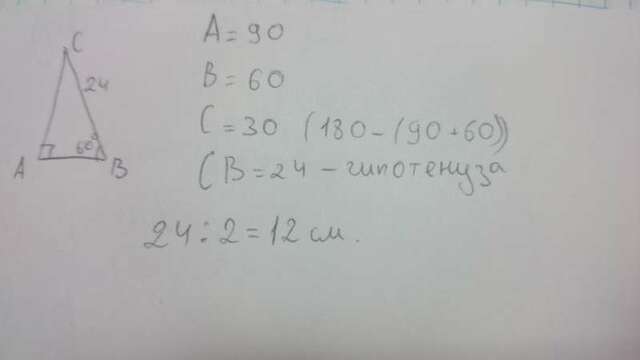 C
24
60°
A
B
A = 90
B = 60
C = 30 (180 - (90 + 60))
CB = 24 - гипотенуза
24 : 2 = 12 см.